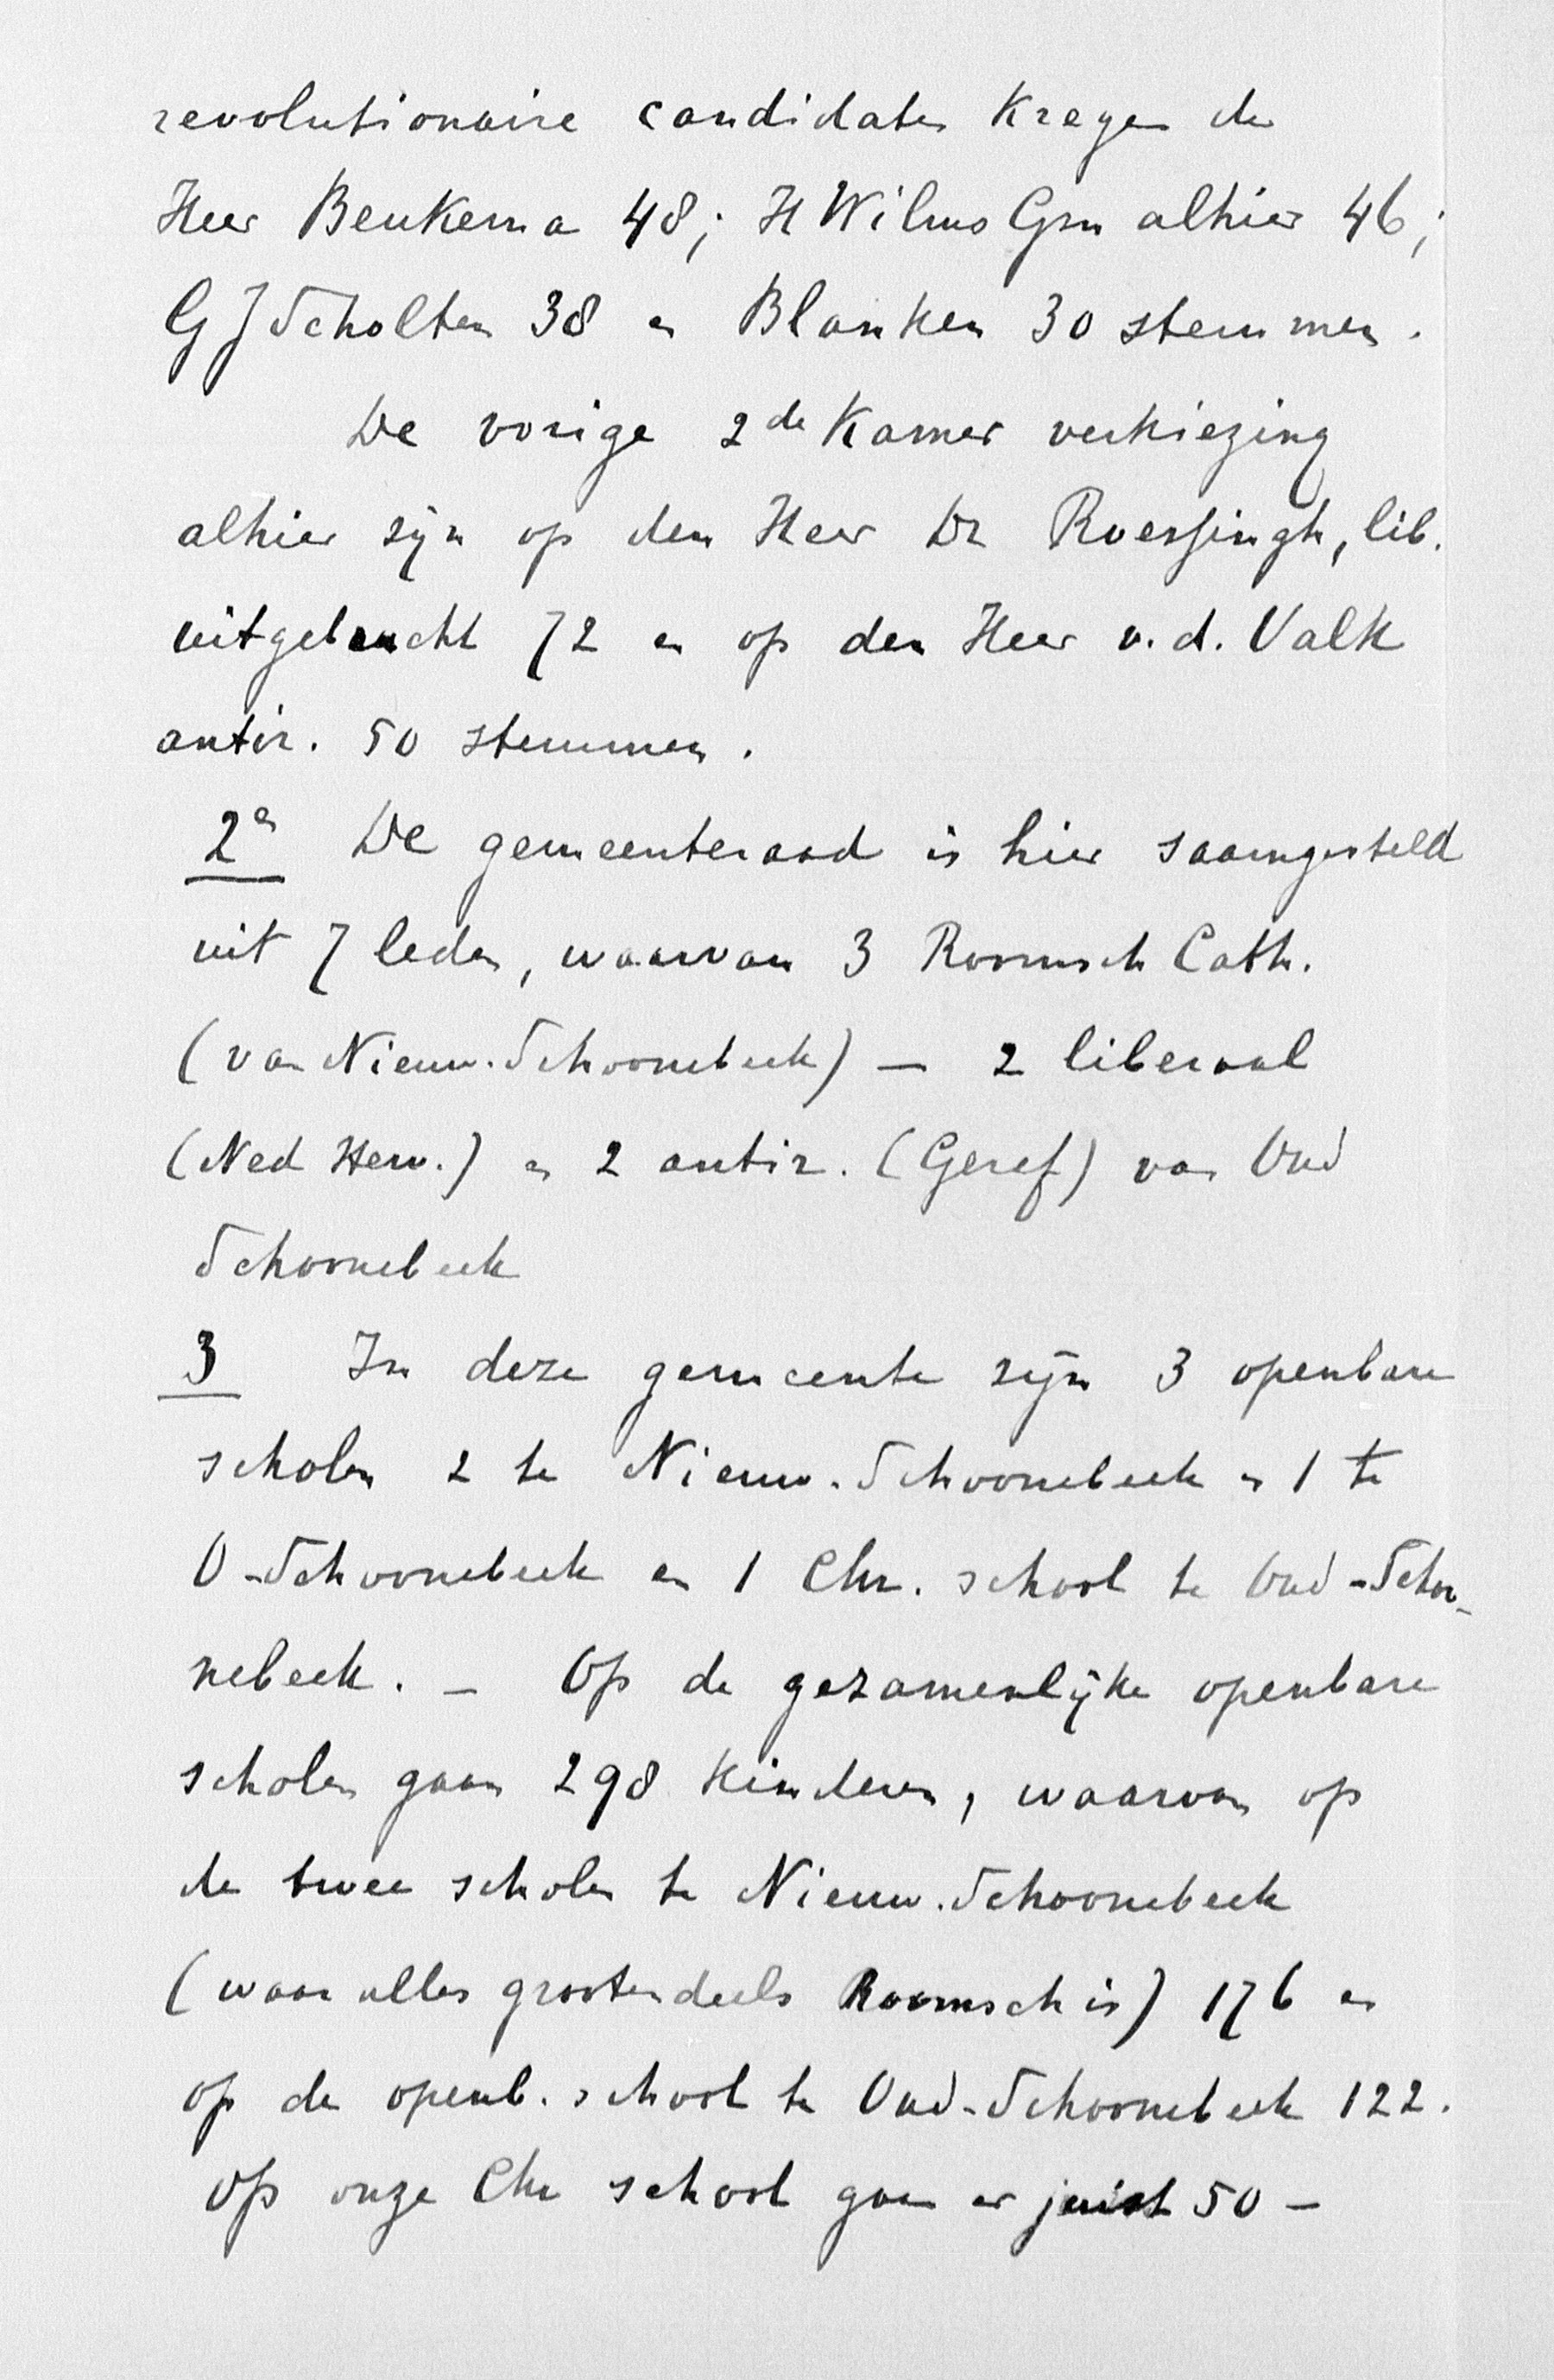 revolutionaire candidaten kregen de
Heer Beukema 48; H Wilms Gzn alhier 46;
G J Scholten 38 en Blanken 30 stemmen.
De vorige 2de Kamer verkiezing
alhier zijn op den Heer Dr Roessingh, lib.
uitgebracht 72 en op den Heer v. d. Valk
antir. 50 stemmen.
2e De gemeenteraad is hier saamgesteld
uit 7 leden, waarvan 3 Roomsch Cath.
(van Nieuw-Schoonebeek) — 2 liberaal
(Ned Herv.) en 2 antir. (Geref) van Oud
Schoonebeek
3 In deze gemeente zijn 3 openbare
scholen 2 te Nieuw-Schoonebeek en 1 te
O-Schoonebeek en 1 Chr. school te Oud-Schoo-
nebeek. — Op de gezamenlijke openbare
scholen gaan 298 kinderen, waarvan op
de twee scholen te Nieuw-Schoonebeek
(waar alles grootendeels Roomsch is) 176 en
op de openb. school te Oud-Schoonebeek 122.
Op onze Chr school gaan er juist 50 —